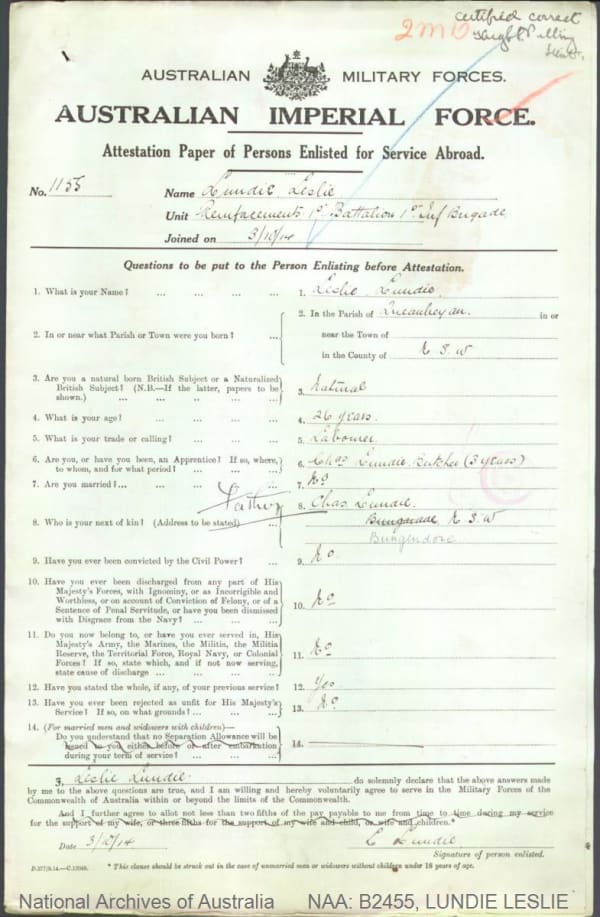 certified correct
2 MD
AUSTRALIAN MILITARY FORCES.
AUSTRALIAN IMPERIAL FORCE.
Attestation Paper of Persons Enlisted for Service Abroad.
No. 1155
Name Lundie Leslie
Unit Reinforcements 1st Battalion 1st Inf Brigade
Joined on 3/10/14
Questions to be put to the Person Enlisting before Attestation.
1. What is your Name? ... ... ... ... 1. Leslie Lundie
2. In or near what Parish or Town were you born? ... 2. In the Parish of Queanbeyan. in or
near the Town of
in the County of N S W
3. Are you a natural born British Subject or a Naturalized
British Subject? (N.B.—If the latter, papers to be
shown.) ... ... ... ... ... 3. Natural
4. What is your age? ... ... ... ... 4. 26 years.
5. What is your trade or calling? ... ... ... 5. Labourer
6. Are you, or have you been, an Apprentice? If so, where,
to whom, and for what period? ... ... ... 6. Chas Lundie Butcher (3 years)
7. Are you married?... ... ... ... ... 7. No
Father
8. Who is your next of kin? (Address to be stated) ... 8. Chas. Lundie.
Bungarade N S W
Bungendore
9. Have you ever been convicted by the Civil Power? ... 9. No
10. Have you ever been discharged from any part of His
Majesty's Forces, with Ignominy, or as Incorrigible and
Worthless, or on account of Conviction of Felony, or of a
Sentence of Penal Servitude, or have you been dismissed
with Disgrace from the Navy? ... ... ... 10. No
11. Do you now belong to, or have you ever served in, His
Majesty's Army, the Marines, the Militia, the Militia
Reserve, the Territorial Force, Royal Navy, or Colonial
Forces? If so, state which, and if not now serving,
state cause of discharge ... ... ... ... 11. No
12. Have you stated the whole, if any, of your previous service? 12. Yes
13. Have you ever been rejected as unfit for His Majesty's
Service? If so, on what grounds? ... ... ... 13. No.
14. (For married men and widowers with children)—
Do you understand that no Separation Allowance will be
issued to you either before or after embarkation
during your term of service? ... ... ... 14.
I, Leslie Lundie do solemnly declare that the above answers made
by me to the above questions are true, and I am willing and hereby voluntarily agree to serve in the Military Forces of the
Commonwealth of Australia within or beyond the limits of the Commonwealth.
And I further agree to allot not less than two fifths of the pay payable to me from time to time during my service
for the support of my wife, or three fifths for the support of my wife and child, or wife and children.*
Date 3/10/14 L Lundie
Signature of person enlisted.
* This clause should be struck out in the case of unmarried men or widowers without children under 18 years of age.
National Archives of Australia NAA: B2455, LUNDIE LESLIE